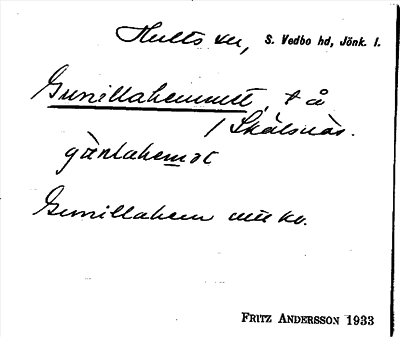 Hults sn, S. Vedbo hd, Jönk. l.
Gunillahemmet, t å
/ Skälsnäs.
gùnlahemət
Gunillahem utt kv.
FRITZ ANDERSSON 1933